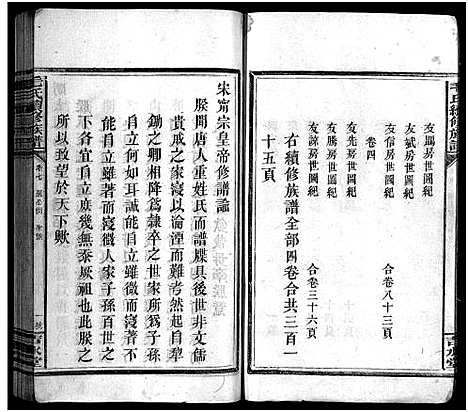 毛氏續修族譜
友鳳房世圖紀
友斌房世圖紀 合卷八十三頁
卷四
友先房世圖紀
友諒房世圖紀
友信房世圖紀 合卷三十六頁
右續修族譜全部四卷合共三百一
十五頁
宋甯宗皇帝修譜諭
朕聞唐人重姓氏而譜牒具後世非文儒
貴戚之家寖以淪湮而難考然起自犂
鋤之卿相降爲隸卒之世家所爲子孫
自立何如耳誠能自立雖微而寖著不
能自立雖著而寖微人家子孫百世之
下各宜自立庶幾無忝厥祖也此朕之
所以致望於天下歟
毛氏續修族譜
卷之